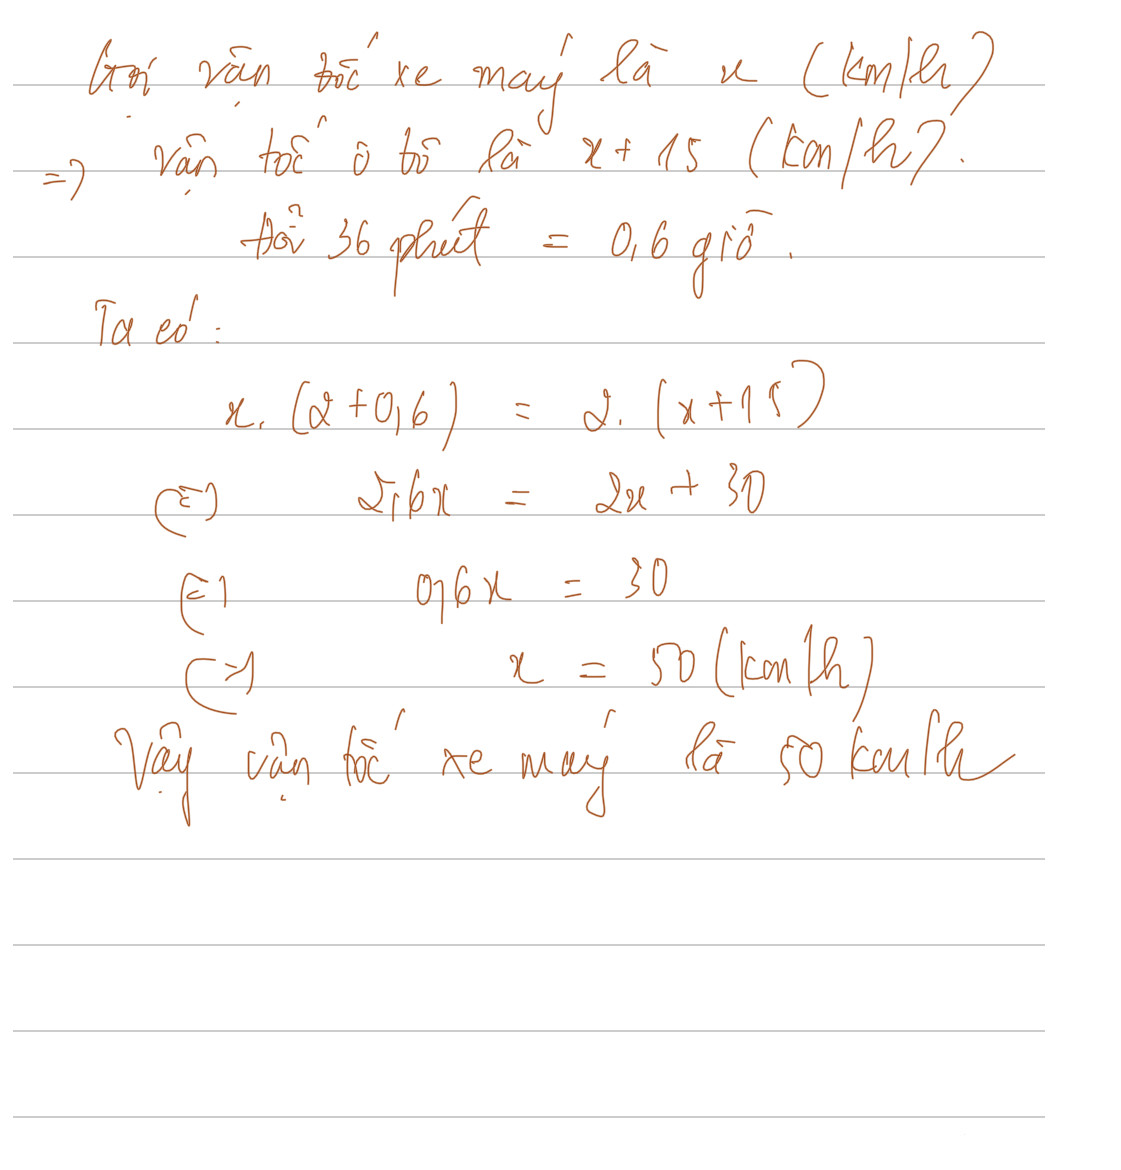 Gọi vận tốc xe máy là x (km/h)
=> vận tốc ô tô là x + 15 (km/h).
Đổi 36 phút = 0,6 giờ.
Ta có:
x. (2 + 0,6) = 2. (x + 15)
(=) 2,6x = 2x + 30
(=) 0,6x = 30
(=) x = 50 (km/h)
Vậy vận tốc xe máy là 50 km/h